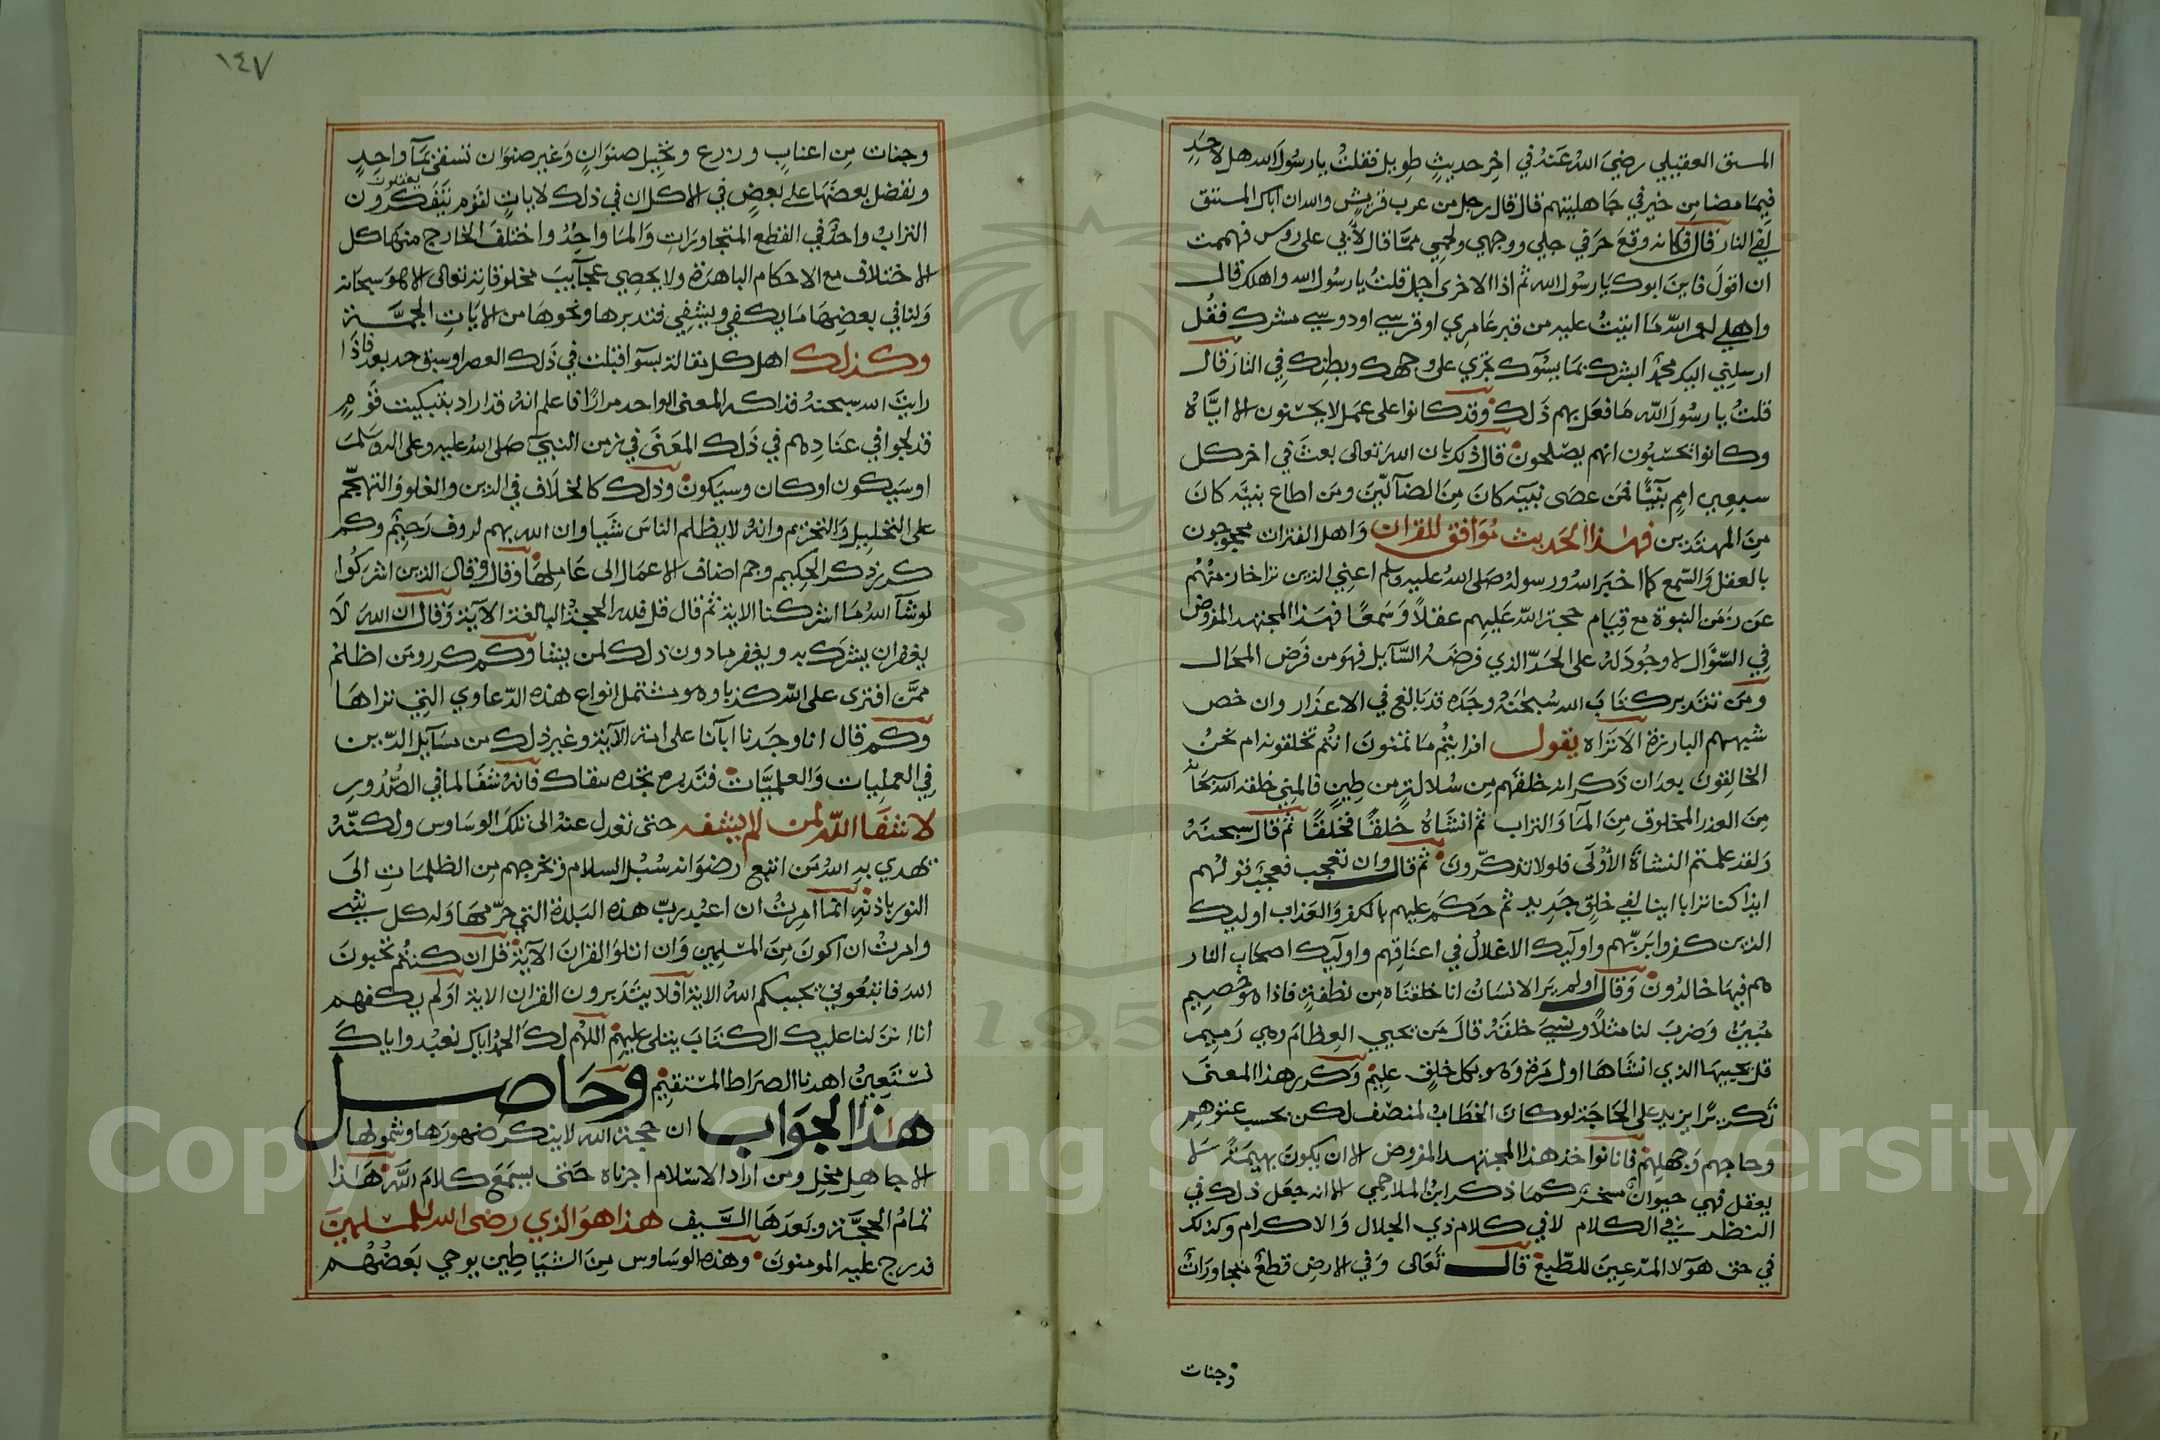 المستق العقيلي رضي الله عنه في اخر حديث طويل فقلت يا رسول الله هل لاحد
فيما مضا من خير في جاهليتهم قال قال رجل من عرب قريش والله ان اباك المستق
لفي النار قال فكانه وقع حر في جلي ووجهي ولحمي مما قال لابي على روس فهممت
ان اقول فاين ابوك يا رسول الله ثم اذا الاخرى اجمل قلت يا رسول الله واهلك قال
واهلي لعمر الله ما اتيت عليه من قبر عامري او قرسي او دوسي مشرك فقل
ارسلني اليك محمد ابشرك بما يسؤك تجري على وجهك وبطنك في النار قال
قلت يا رسول الله ما فعل بهم ذلك وقد كانوا على عمل لا يحسنون الا اياه
وكانوا يحسبون انهم يصلحون قال ذلك بان الله تعالى بعث في اخر كل
سبعين امم نبيا فمن عصى نبيه كان من الضالين ومن اطاع نبيه كان
من المهتدين فهذا الحديث موافق للقران واهل الفتران محجوجون
بالعقل والسمع كما اخبر الله ورسوله صلى الله عليه وسلم اعني الذين تراخا زمنهم
عن زمن النبوة مع قيام حجة الله عليهم عقلا وسمعا فهذا المجتهد المفروض
في السؤال لا وجود له على الحد الذي فرضه السايل فهو من فرض المحال
ومن تتدبر كتاب الله سبحنه وجده قد بالغ في الاعذار وان خص
شبههم البارزة الا تراه يقول افرايتم ما تمنون انتم تخلقونه ام نحن
الخالقون بعد ان ذكر انه خلقهم من سلالة من طين فالمني خلقه الله سبحانه
من العذر المخلوق من الما والتراب ثم انشاه خلقا فخلقا ثم قال سبحنه
ولقد علمتم النشاة الاولى فلولا تذكرون ثم قال وان تعجب فعجب قولهم
ايذا كنا ترابا اينا لفي خلق جديد ثم حكم عليهم بالكفر والعذاب اوليك
الذين كفروا بربهم واوليك الاغلال في اعناقهم واوليك اصحاب النار
هم فيها خالدون وقال اولم ير الانسان انا خلقناه من نطفة فاذا هو خصيم
مبين وضرب لنا مثلا ونسي خلقه قال من يحيي العظام وهي رميم
قل يحييها الذي انشاها اول مرة وهو بكل خلق عليم وكرر هذا المعنى
تكريرا يزيد على الحاجة لو كان الخطاب لمنصف لكن بحسب عتوهم
وحاجهم وجهلهم فاتا نواخذ هذا المجتهد المفروض الا ان يكون بهيمة لا
يعقل فهي حيوان سخر كما ذكر ابن الملاحمي الا انه جعل ذلك في
النظر في الكلام لا في كلام ذي الجلال والاكرام وكذلك
في حق هولا المدعين للطبع قال تعالى وفي الارض قطع متجاورات
وجنات
١٤٧
وجنات من اعناب وزرع ونخيل صنوان وغير صنوان تسقى بما واحد
ونفضل بعضها على بعض في الاكل ان في ذلك لايات لقوم يتفكرون يعقلون
التراب واحد في القطع المتجاورات والما واحد واختلف الخارج منها كل
الاختلاف مع الاحكام الباهرة ولا يحصي عجايب مخلوقاته تعالى الا هو سبحانه
ولنا في بعضها ما يكفي ويشفي فتدبرها ونحوها من الايات الجمة
وكذلك اهل كل مقالة بسوا قبلت في ذلك العصر او سبق حد بعد فاذا
رايت الله سبحنه قد اكد المعنى الواحد مرارا فاعلم انه قد اراد بتبكيت قوم
قد لجوا في عنادهم في ذلك المعنى في زمن النبي صلى الله عليه وعلى اله وسلم
او سيكون او كان وسيكون وذلك كالخلاف في الدين والغلو والتهجم
على التحليل والتحريم وانه لا يظلم الناس شيا وان الله بهم لروف رحيم وكم
كرر ذكر الحكيم وجم اضاف الاعمال الى عاملها وقال وقال الذين اشركوا
لو شا الله ما اشركنا الاية ثم قال قل فلله الحجة البالغة الاية وقال ان الله لا
يغفر ان يشرك به ويغفر ما دون ذلك لمن يشا وكم كرر ومن اظلم
ممن افترى على الله كذبا وهو مشتمل انواع هذه الدعاوي التي تراها
وكم قال انا وجدنا ابانا على امة الاية وغير ذلك من مسايل الدين
في العمليات والعلميات فتدبره تجده شفاك فانه شفا لما في الصدور
لا شفا الله لمن لم يشفه حتى نعدل عنه الى تلك الوساوس ولكنه
يهدي به الله من اتبع رضوانه سبل السلام وتخرجهم من الظلمات الى
النور باذنه انما امرت ان اعبد رب هذه البلدة التي حرمها وله كل شي
وامرت ان اكون من المسلمين وان اتلوا القران الاية قل ان كنتم تحبون
الله فاتبعوني يحببكم الله الاية افلا يتدبرون القران الاية اولم يكفهم
انا انزلنا عليك الكتاب يتلى عليهم اللهم لك الحمد اياك نعبد واياك
نستعين اهدنا الصراط المستقيم وحاصل
هذا الجواب ان حجة الله لا ينكر ضهورها وشمولها
الا جاهل مخل ومن اراد الاسلام اجرناه حتى يسمع كلام الله هذا
تمام الحجة وبعدها السيف هذا هو الذي رضى الله للمسلمين
قد رج عليه المومنون وهذه الوساوس من الشياطين يوحي بعضهم
Copyright © King Saud University
1957